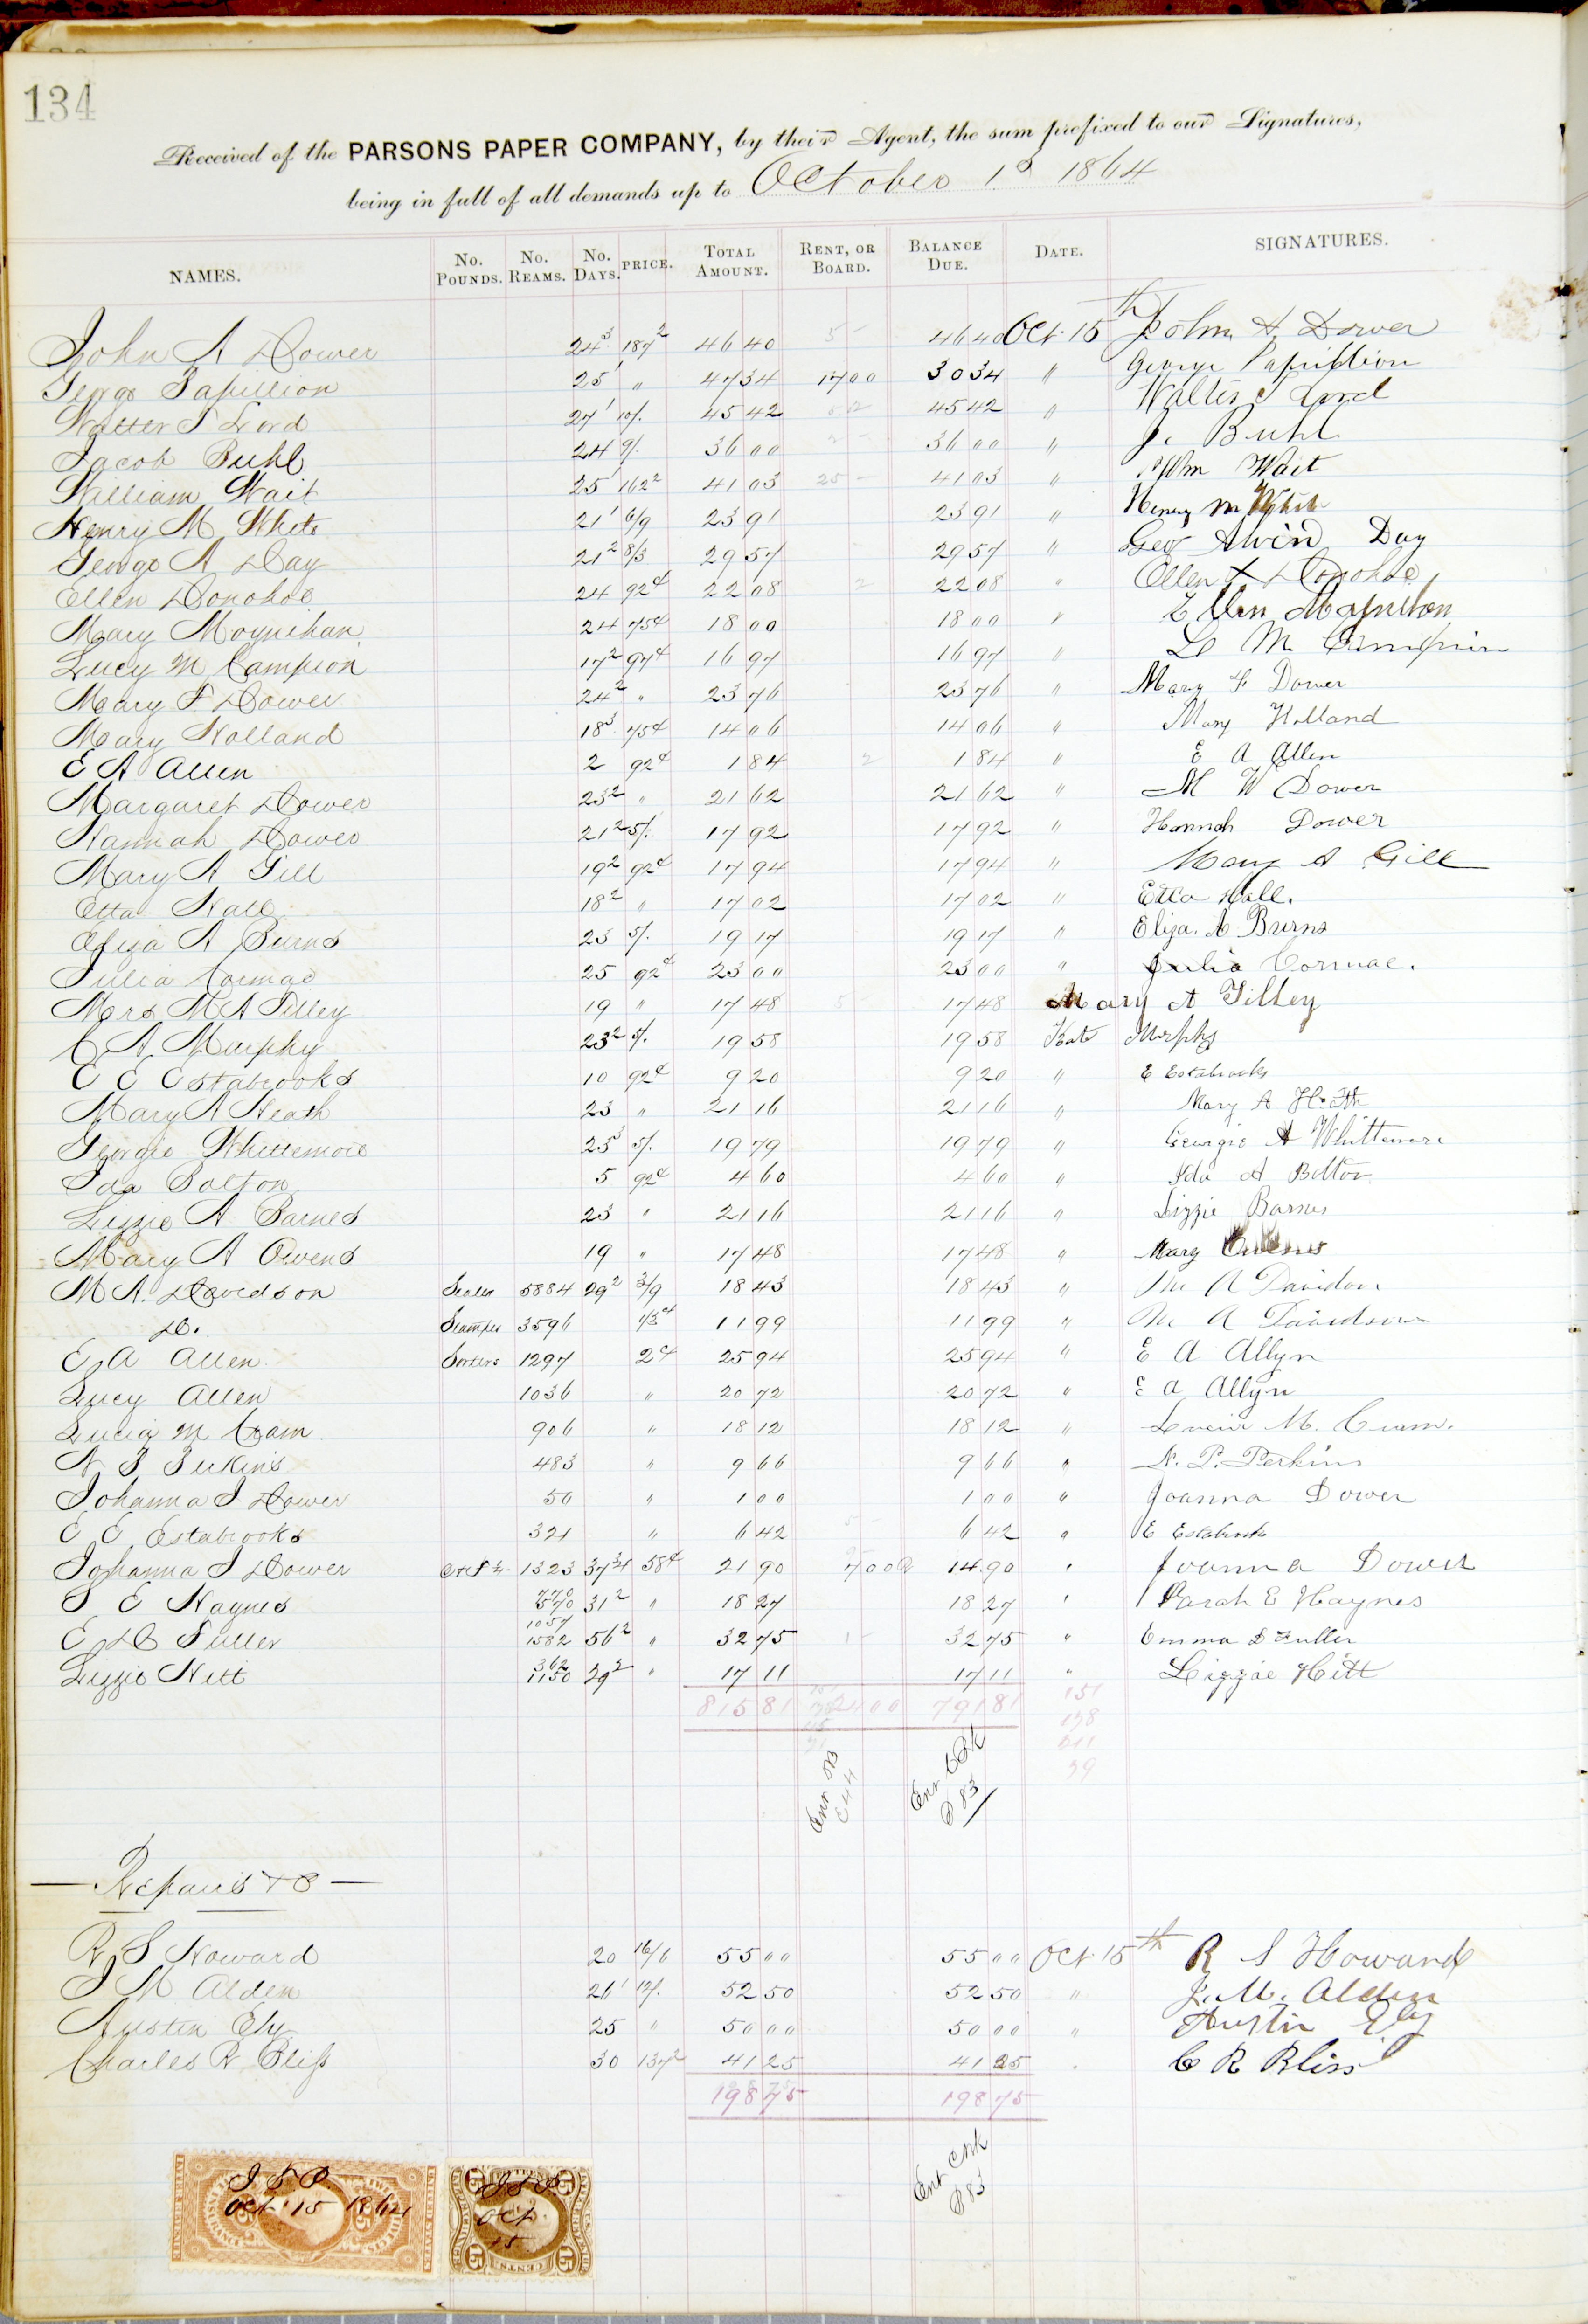 134
Received of the PARSONS PAPER COMPANY, by their Agent, the sum prefixed to our Signatures,
being in full of all demands up to October 1st 1864
NAMES. No. Pounds. No. Reams. No. Days. PRICE. Total Amount. Rent, or Board. Balance Due. Date. SIGNATURES.
John A Dower 24 3 187 2 46 40 5 - 46 40 Oct. 15th John A. Dower
George Papillion 25 1 " 47 34 17 00 30 34 " George Papillion
Walter S Lord 27 1 10/. 45 42 45 42 " Walter S Lord
Jacob Buhl 24 9/. 36 00 2 - 36 00 " J. Buhl
William Wait 25 1 162 2 41 03 25 - 41 03 " Wm Wait
Henry M White 21 1 6/9 23 91 23 91 " Henry M White
George A Day 21 2 8/3 29 57 29 57 " Geo Alvin Day
Ellen Donohoe 24 92 c 22 08 2 22 08 " Ellen X Donohoe
Mary Moynihan 24 75 c 18 00 18 00 " Ellen Moynihan
Lucy M Campion 17 2 97 c 16 97 16 97 " L M Campion
Mary F Dower 24 2 " 23 76 23 76 " Mary F Dower
Mary Holland 18 3 75 c 14 06 14 06 " Mary Holland
E A Allen 2 92 c 1 84 2 1 84 " E A Allen
Margaret Dower 23 2 " 21 62 21 62 " M W Dower
Hannah Dower 21 2 5/. 17 92 17 92 " Hannah Dower
Mary A Gill 19 2 92 c 17 94 17 94 " Mary A Gill
Etta Hall 18 2 " 17 02 17 02 " Etta Hall.
Eliza A Burns 23 5/. 19 17 19 17 " Eliza. A Burns
Julia Cormac 25 92 c 23 00 23 00 " Julia Cormac.
Mrs M A Tilley 19 " 17 48 5 - 17 48 Mary A Tilley
C A Murphy 23 2 5/. 19 58 19 58 Kate Murphy
E E Estabrooks 10 92 c 9 20 9 20 " E Estabrooks
Mary A Heath 23 " 21 16 21 16 " Mary A Heath
Georgie Whittemore 23 3 5/. 19 79 19 79 " Georgie A Whittemore
Ida Bolton 5 92 c 4 60 4 60 " Ida A Bolton
Lizzie A Barnes 23 " 21 16 21 16 " Lizzie Barnes
Mary A Owens 19 " 17 48 17 48 " Mary Owens
M A. Davidson Sealer 5884 29 2 3/9 18 43 18 43 " M A Davidson
Do. Stamper 3596 1/3 c 11 99 11 99 " M A Davidson
E A Allen Sorters 1297 2 c 25 94 25 94 " E A Allyn
Lucy Allen 1036 " 20 72 20 72 " E A Allyn
Lucia M Cram 906 " 18 12 18 12 " Lucia M. Cram.
N P Perkins 483 " 9 66 9 66 " N. P. Perkins
Johanna J Dower 50 " 1 00 1 00 " Joanna Dower
E E Estabrooks 321 " 6 42 5 - 6 42 " E Estabrooks
Johanna J Dower 1323 37 3/4 58 c 21 90 7 00 14 90 " Joanna Dower
S E Haynes 770 570 31 2 " 18 27 18 27 " Sarah E Haynes
E D Fuller 1057 1582 56 2 " 32 75 1 - 32 75 " Emma D Fuller
Lizzie Hitt 362 1130 29 2 " 17 11 17 11 " Lizzie Hitt
815 81 24 00 791 81
151
138
211
39
Ent CBk
P 83
Repairs & C
R S Howard 20 16/6 55 00 55 00 Oct. 15th R S Howard
J M Alden 26 1 12/. 52 50 52 50 " J. M. Alden
Austin Ely 25 " 50 00 50 00 " Austin Ely
Charles R Bliss 30 137 2 41 25 41 25 " C R Bliss
198 75 198 75
Ent CBk
P 83
J S P
Oct 15 1864
J S P
Oct
15
UNITED STATES
15 CENTS 15